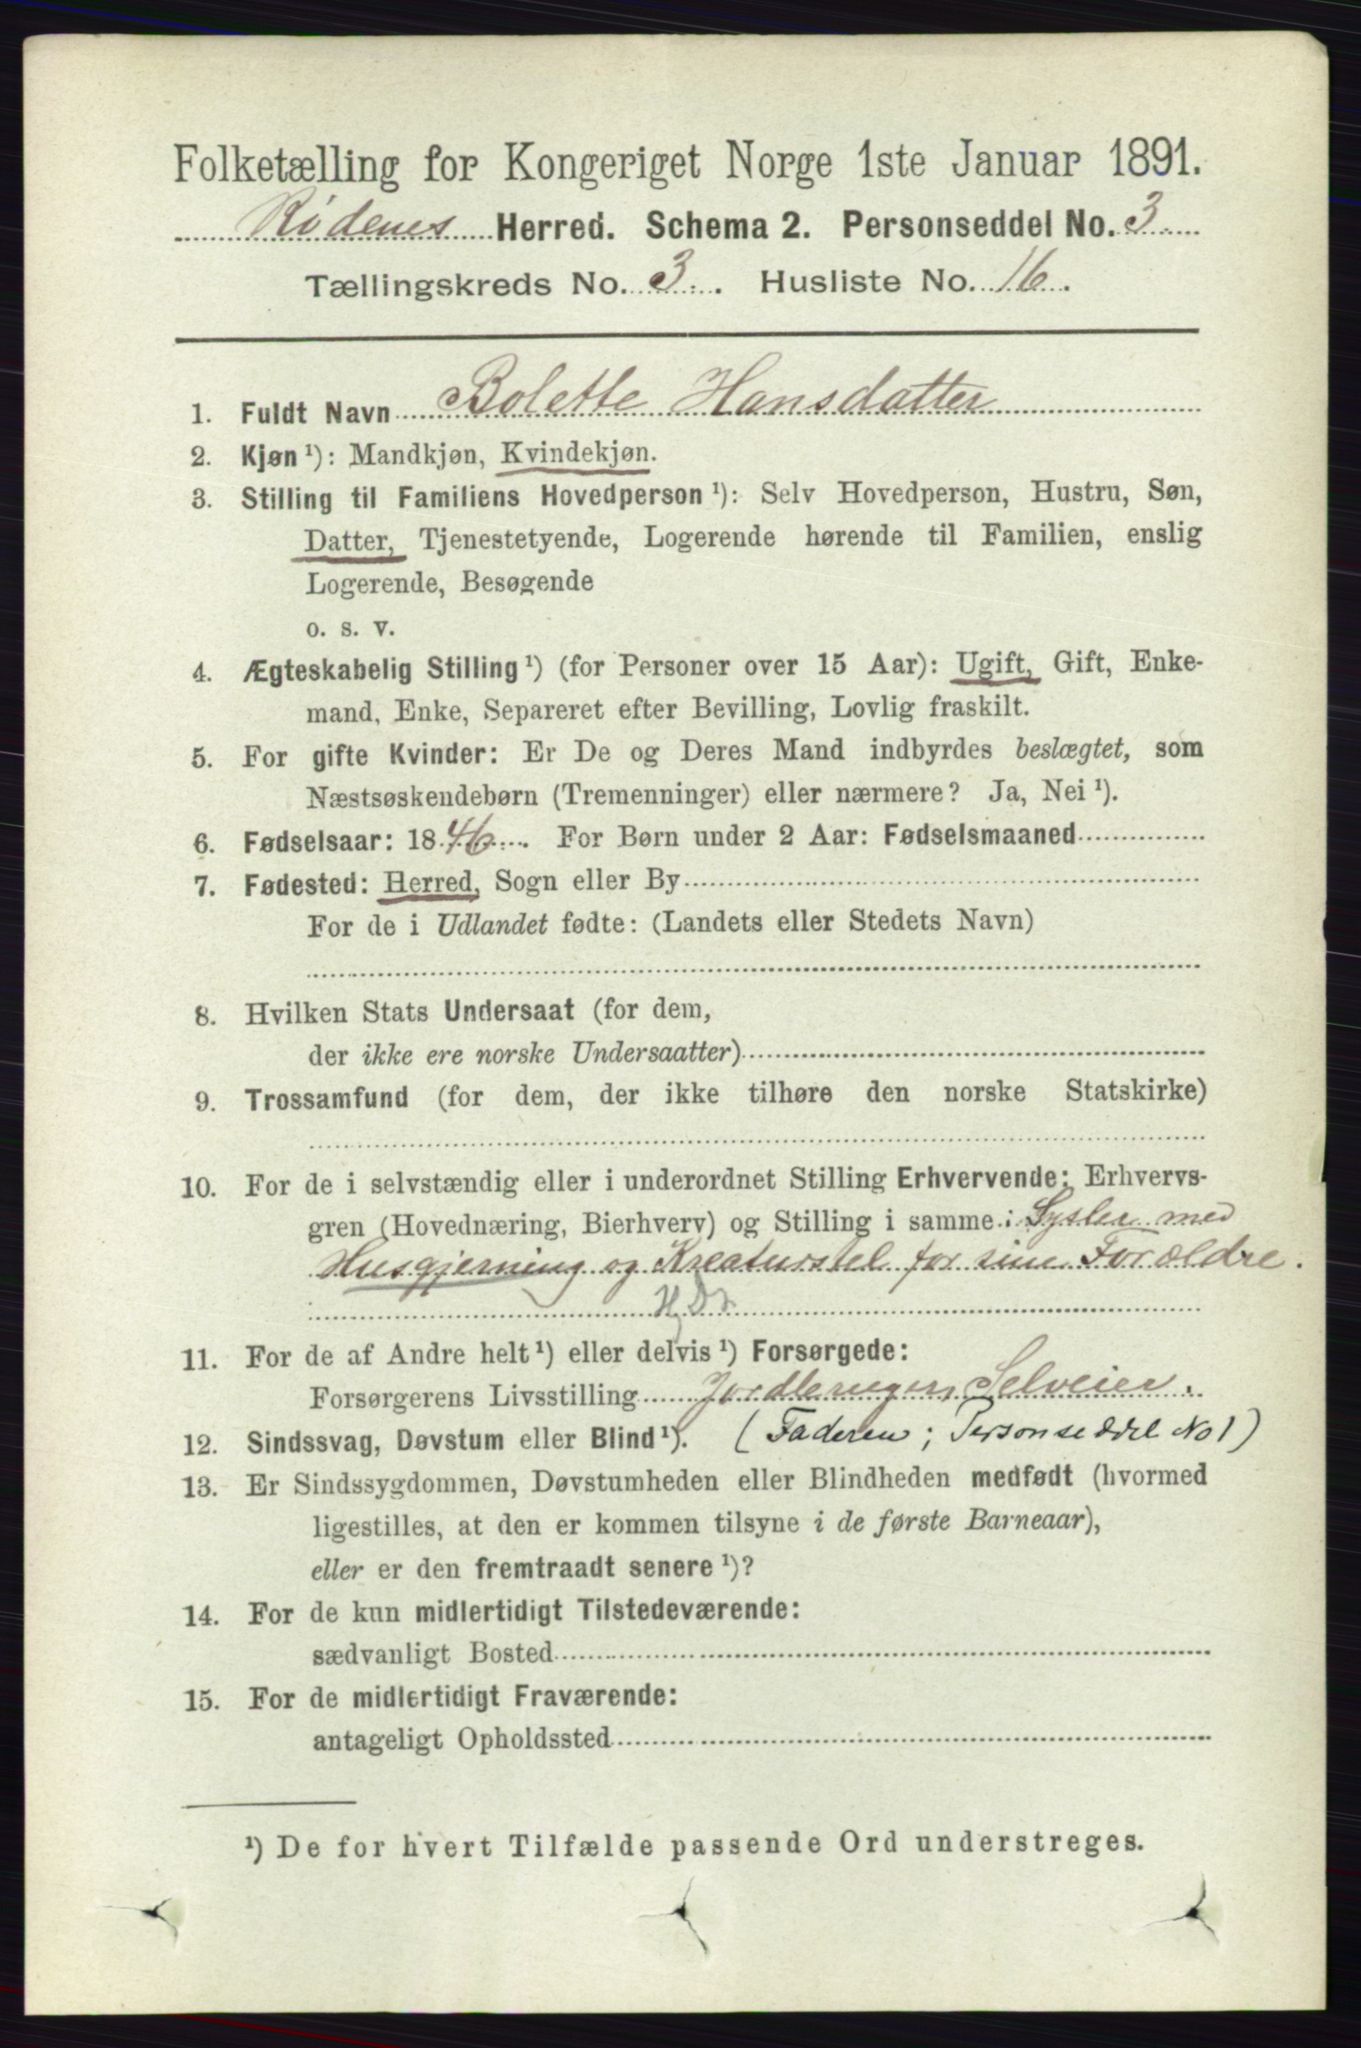 Folketælling for Kongeriget Norge 1ste Januar 1891.
Rødenes Herred. Schema 2. Personseddel No. 3
Tællingskreds No. 3. Husliste No. 16.
1. Fuldt Navn Bolette Hansdatter
2. Kjøn ¹): Mandkjøn, Kvindekjøn.
3. Stilling til Familiens Hovedperson ¹): Selv Hovedperson, Hustru, Søn,
Datter, Tjenestetyende, Logerende hørende til Familien, enslig
Logerende, Besøgende
o. s. v.
4. Ægteskabelig Stilling ¹) (for Personer over 15 Aar): Ugift, Gift, Enke-
mand, Enke, Separeret efter Bevilling, Lovlig fraskilt.
5. For gifte Kvinder: Er De og Deres Mand indbyrdes beslægtet, som
Næstsøskendebørn (Tremenninger) eller nærmere? Ja, Nei ¹).
6. Fødselsaar: 1846. For Børn under 2 Aar: Fødselsmaaned
7. Fødested: Herred, Sogn eller By
For de i Udlandet fødte: (Landets eller Stedets Navn)
8. Hvilken Stats Undersaat (for dem,
der ikke ere norske Undersaatter)
9. Trossamfund (for dem, der ikke tilhøre den norske Statskirke)
10. For de i selvstændig eller i underordnet Stilling Erhvervende: Erhvervs-
gren (Hovednæring, Bierhverv) og Stilling i samme: Sysler med
Husgjerning og Kreaturstel for sine Forældre.
11. For de af Andre helt ¹) eller delvis ¹) Forsørgede:
Forsørgerens Livsstilling Jordbruger, Selveier.
12. Sindssvag, Døvstum eller Blind ¹). (Faderen; Personseddel No 1)
13. Er Sindssygdommen, Døvstumheden eller Blindheden medfødt (hvormed
ligestilles, at den er kommen tilsyne i de første Barneaar),
eller er den fremtraadt senere ¹)?
14. For de kun midlertidigt Tilstedeværende:
sædvanligt Bosted
15. For de midlertidigt Fraværende:
antageligt Opholdssted
¹) De for hvert Tilfælde passende Ord understreges.